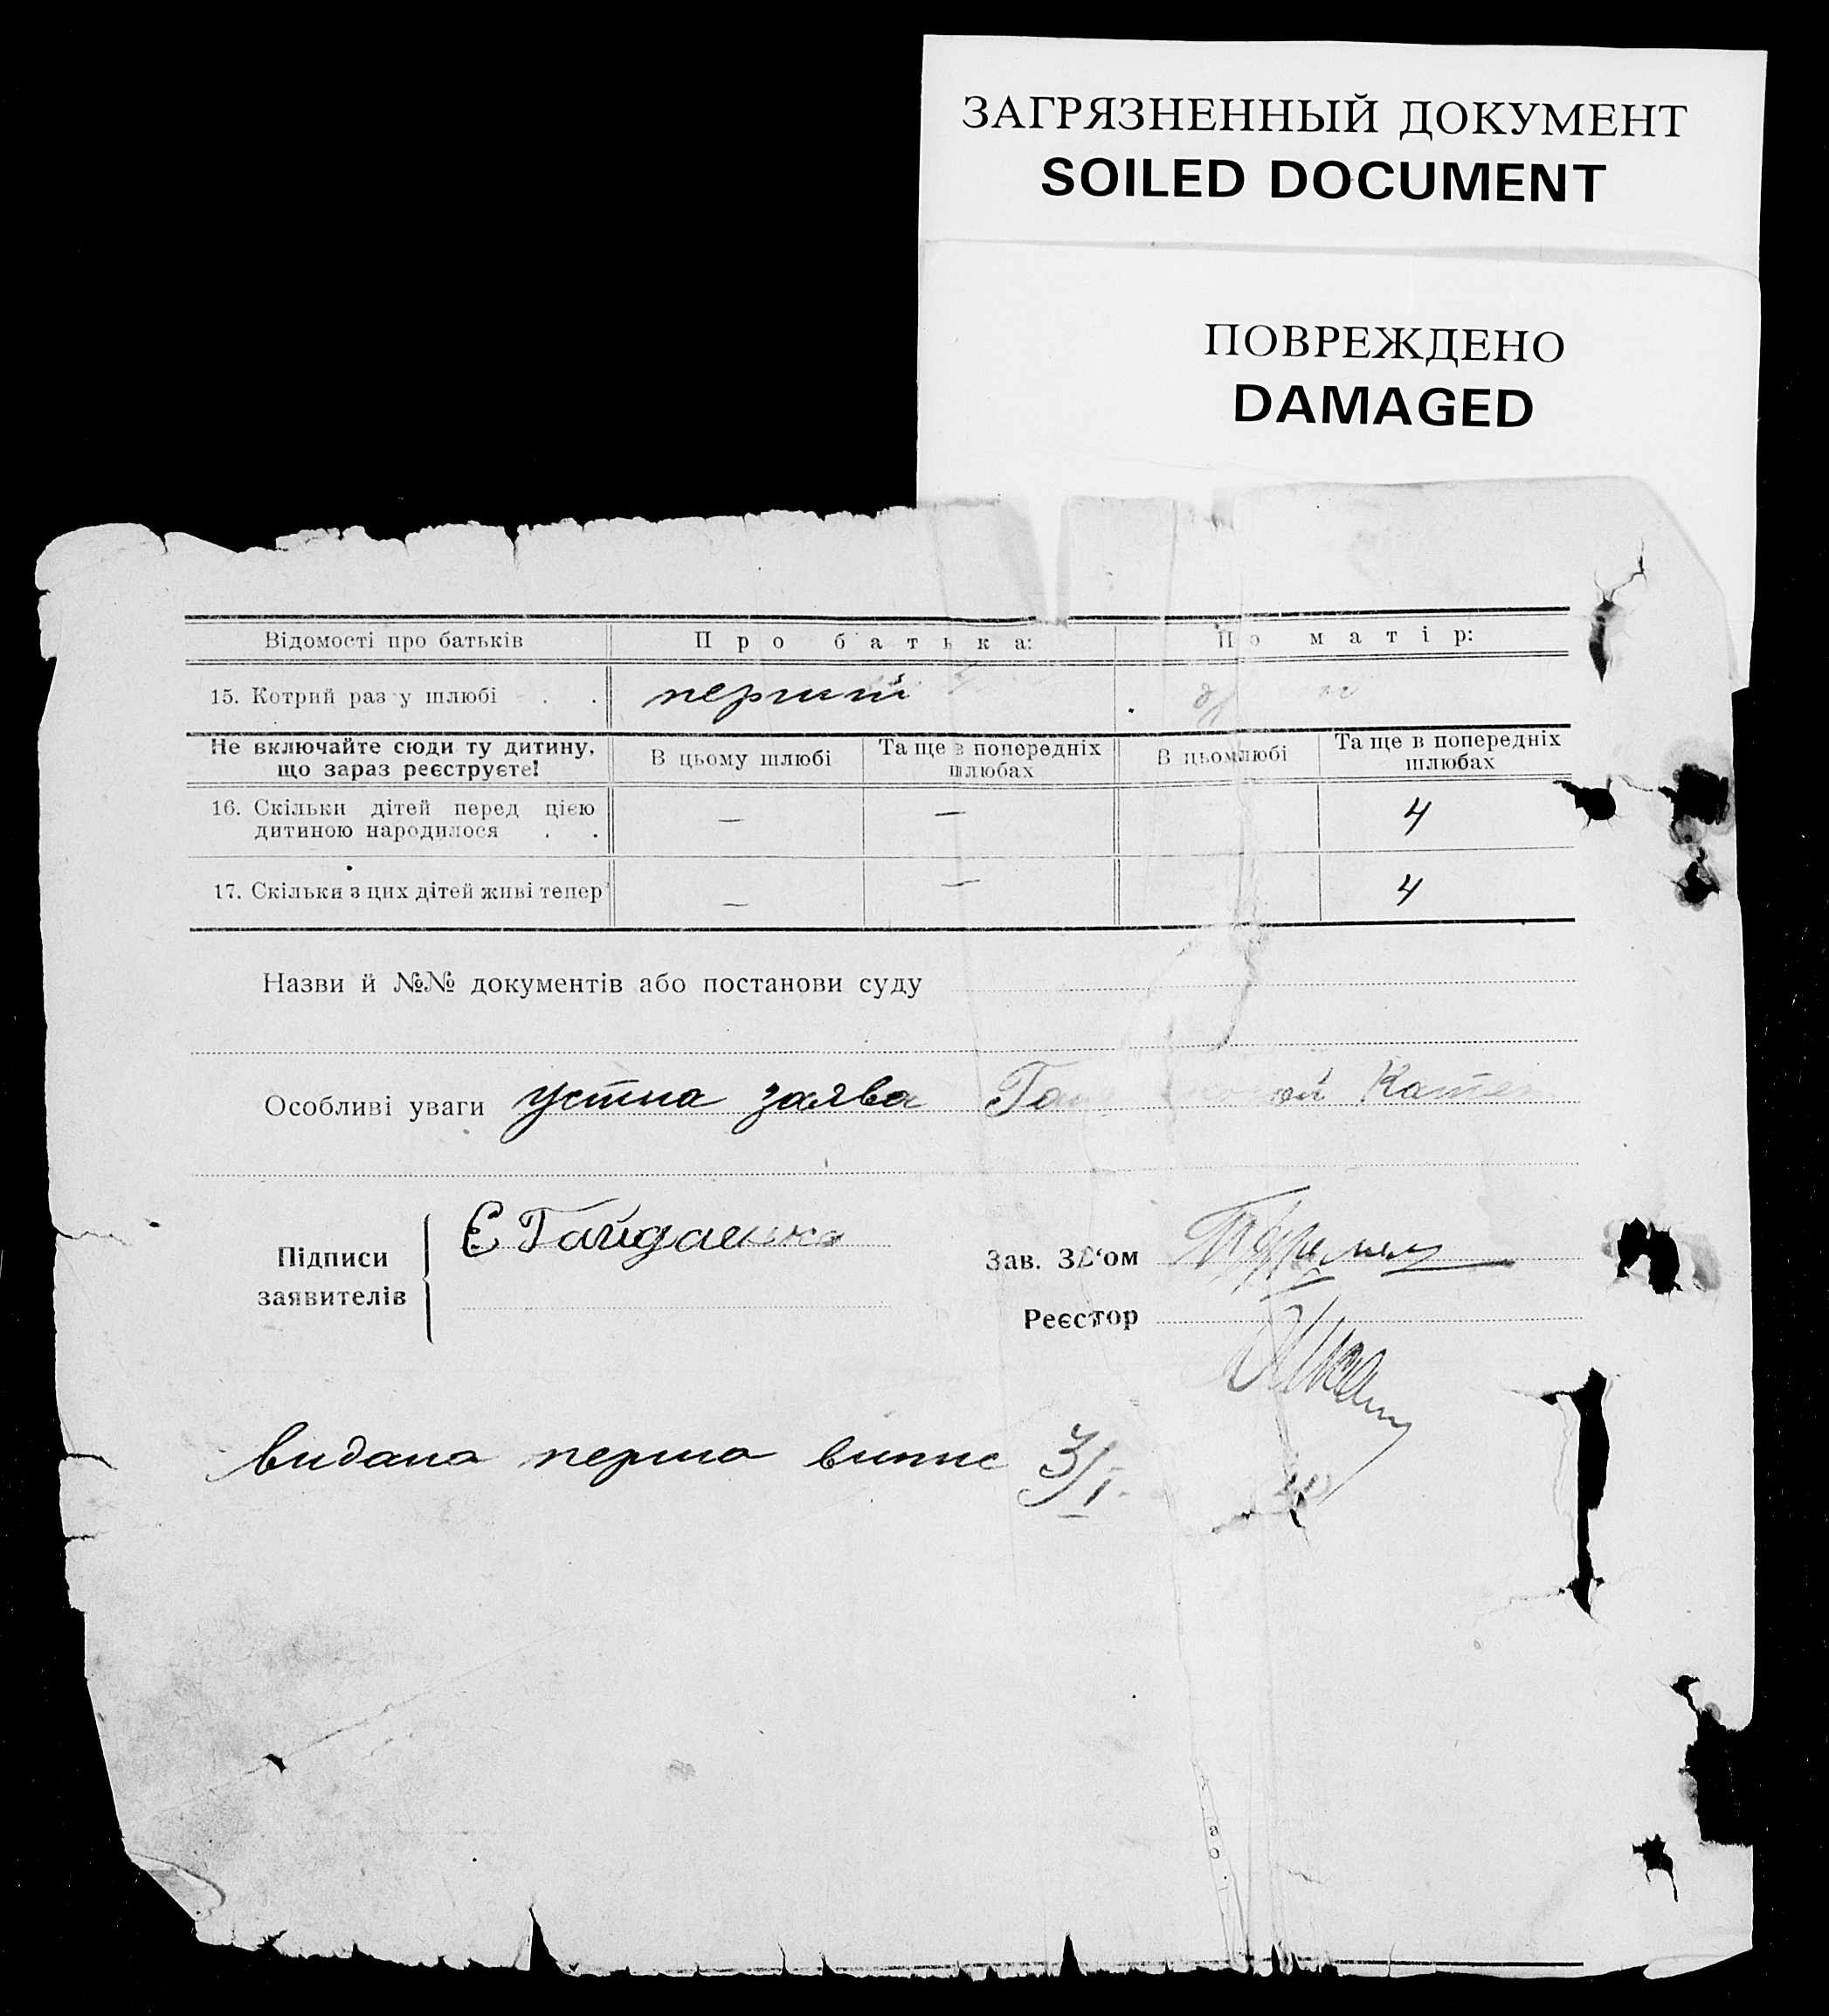 ЗАГРЯЗНЕННЫЙ ДОКУМЕНТ
SOILED DOCUMENT
ПОВРЕЖДЕНО
DAMAGED
Відомості про батьків Про батька: По матір:
15. Котрий раз у шлюбі . . перший
Не включайте сюди ту дитину, що зараз реєструєте! В цьому шлюбі Та ще в попередніх шлюбах В цьом любі Та ще в попередніх шлюбах
16. Скільки дітей перед цією дитиною народилося . . — — 4
17. Скільки з цих дітей живі тепер — — 4
Назви й №№ документів або постанови суду
Особливі уваги устна заява
Підписи заявителів Є Гайдаенко
Зав. ЗВ‘ом
Реєстор
видана перша випис 3/I.